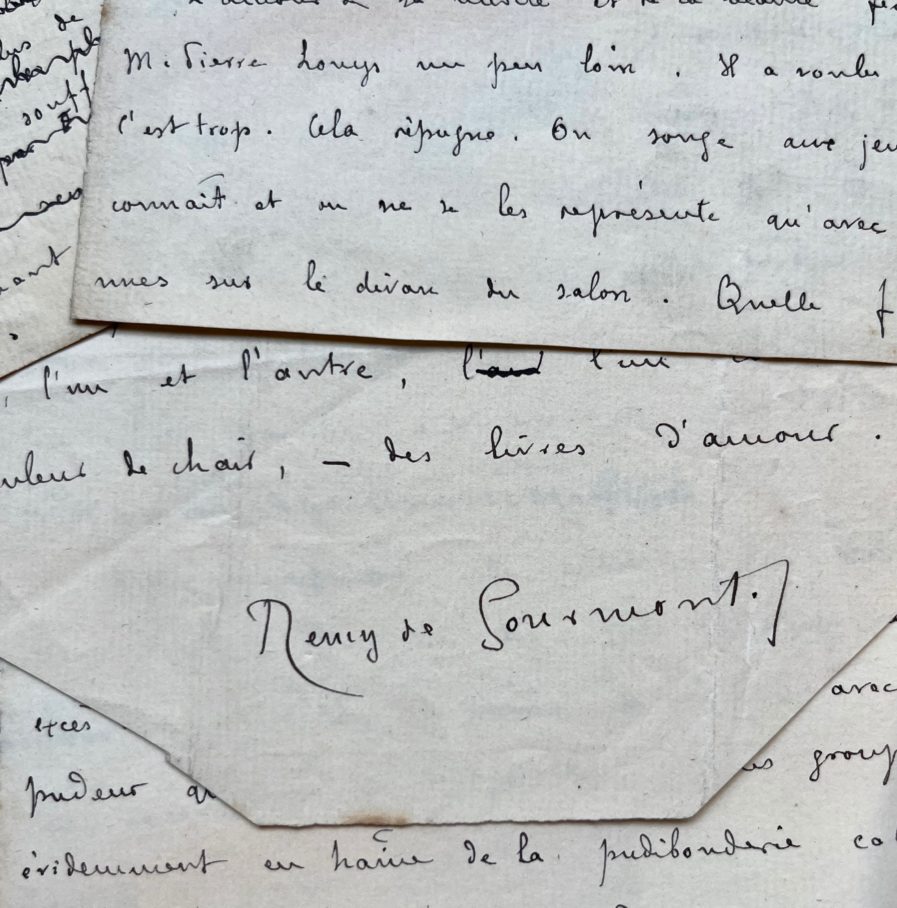 M. Pierre Louys un peu loin. Il a voulu
c'est trop. Cela répugne. On songe aux jeu
connaît et on ne se les représente qu'avec
nues sur le divan du salon. Quelle f
, l'un et l'autre, l'un
uleur de chair, – des livres d'amour.
Remy de Gourmont.
excès
avec
pudeur qu
es group
évidemment en haine de la pudibonderie
lus de
souff
ant